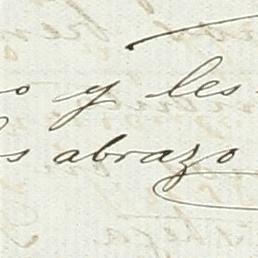 o y les
ls abrazo